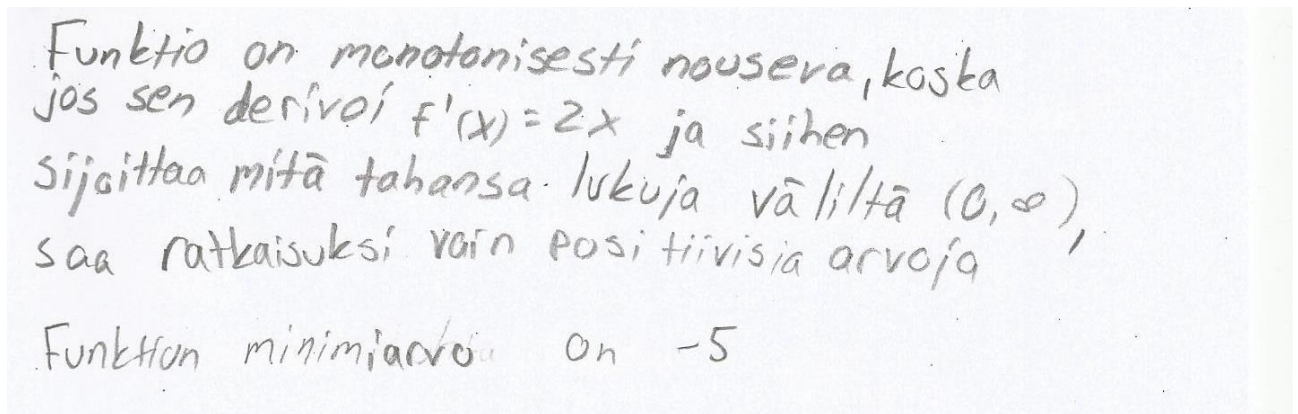 Funktio on monotonisesti nouseva, koska
jos sen derivoi f'(x) = 2x ja siihen
sijoittaa mitä tahansa lukuja väliltä (0, ∞),
saa ratkaisuksi vain positiivisia arvoja
Funktion minimiarvo on -5